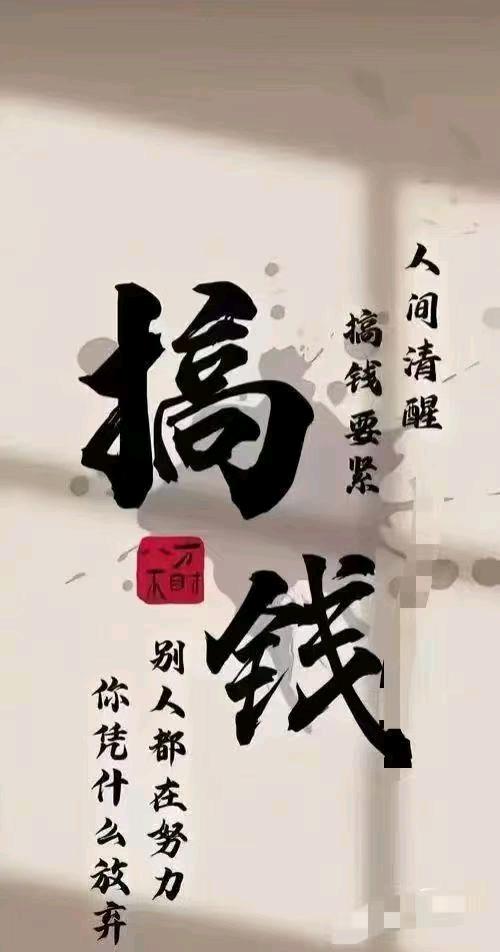 人间清醒
搞钱要紧
搞钱
别人都在努力
你凭什么放弃